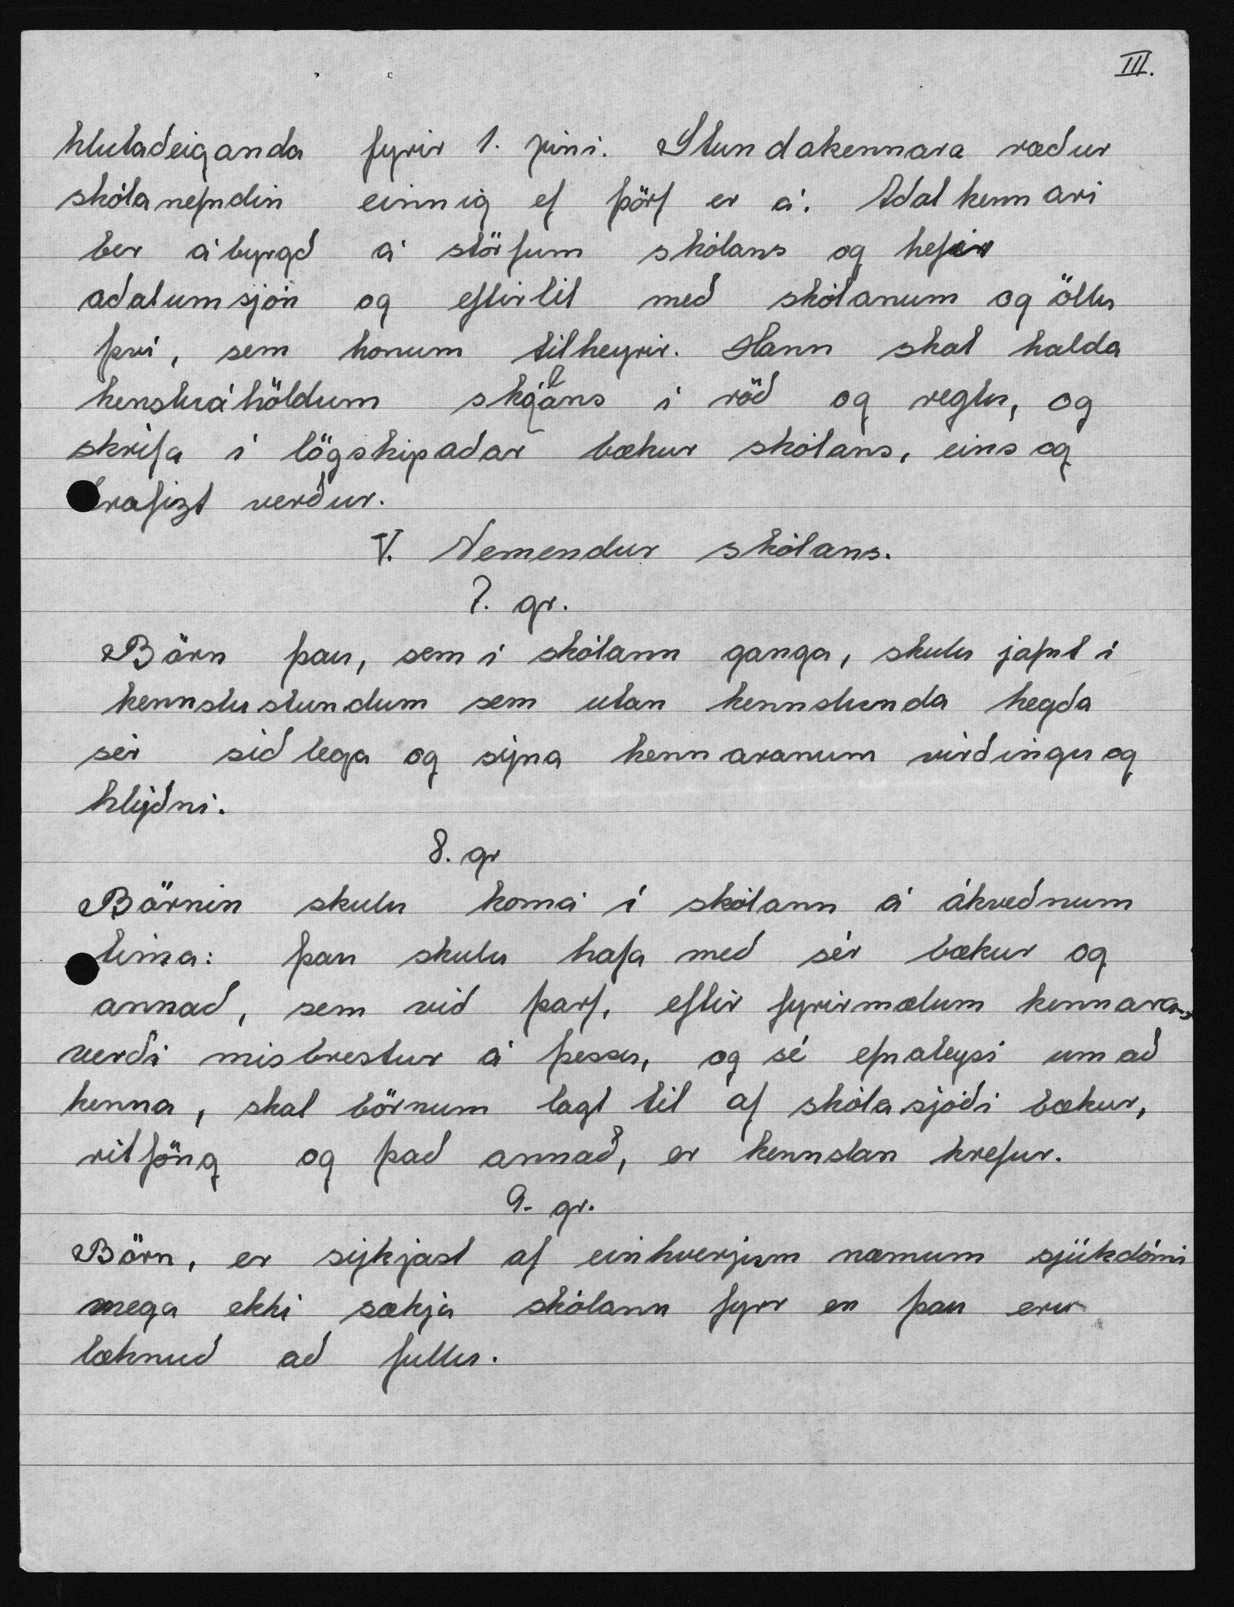 III.
hlutaðeiganda fyrir 1. júní. Stundakennara ræður
skólanefndin einnig ef þörf er á. Aðalkennari
ber ábyrgð á störfum skólans og hefir
aðalumsjón og eftirlit með skólanum og öllu
því, sem honum tilheyrir. Hann skal halda
kensluáhöldum skólans í röð og reglu, og
skrifa í lögskipaðar bækur skólans, eins og
krafizt verður.
V. Nemendur skólans.
7. gr.
Börn þau, sem í skólann ganga, skulu jafnt í
kennslustundum sem utan kennslunda hegða
sér siðlega og sýna kennaranum virðingu og
hlýðni.
8. gr
Börnin skulu koma í skólann á ákveðnum
tíma: þau skulu hafa með sér bækur og
annað, sem við þarf, eftir fyrirmælum kennarans
verði misbrestur á þessu, og sé efnaleysi um að
kenna, skal börnum lagt til af skólasjóði bækur,
ritföng og það annað, er kennslan krefur.
9. gr.
Börn, er sýkjast af einhverjum næmum sjúkdómi
mega ekki sækja skólann fyrr en þau eru
læknuð að fullu.